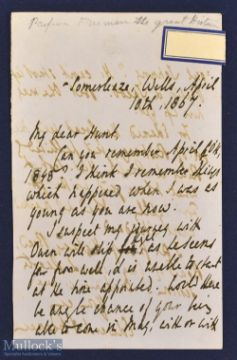 Professor Freeman the great Histori
"Somerleaze, Wells, April
10th, 1867.
My dear Hunt,
Can you remember April 10th,
1848? I think I remember things
which happened when I was as
young as you are now.
I suspect my journey with
Owen will slip as he seems
far from well, & is unable to
at the time appointed. Would there
be any chance of your being
able to come in May, with or with
Mullock's